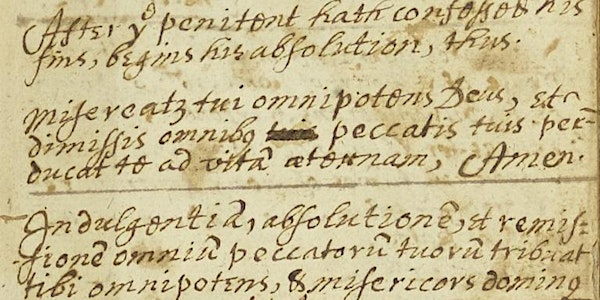 After yͤ penitent hath confessed his
sins, begins his absolution, thus.
Misereatꝫ tui omnipotens Deus, et
dimissis omnibꝫ peccatis tuis per-
ducat te ad vitā æternam, Amen.
Indulgentiā, absolutionē, et remis-
sionē omniū peccatorū tuorū tribuat
tibi omnipotens, & misericors dominꝫ